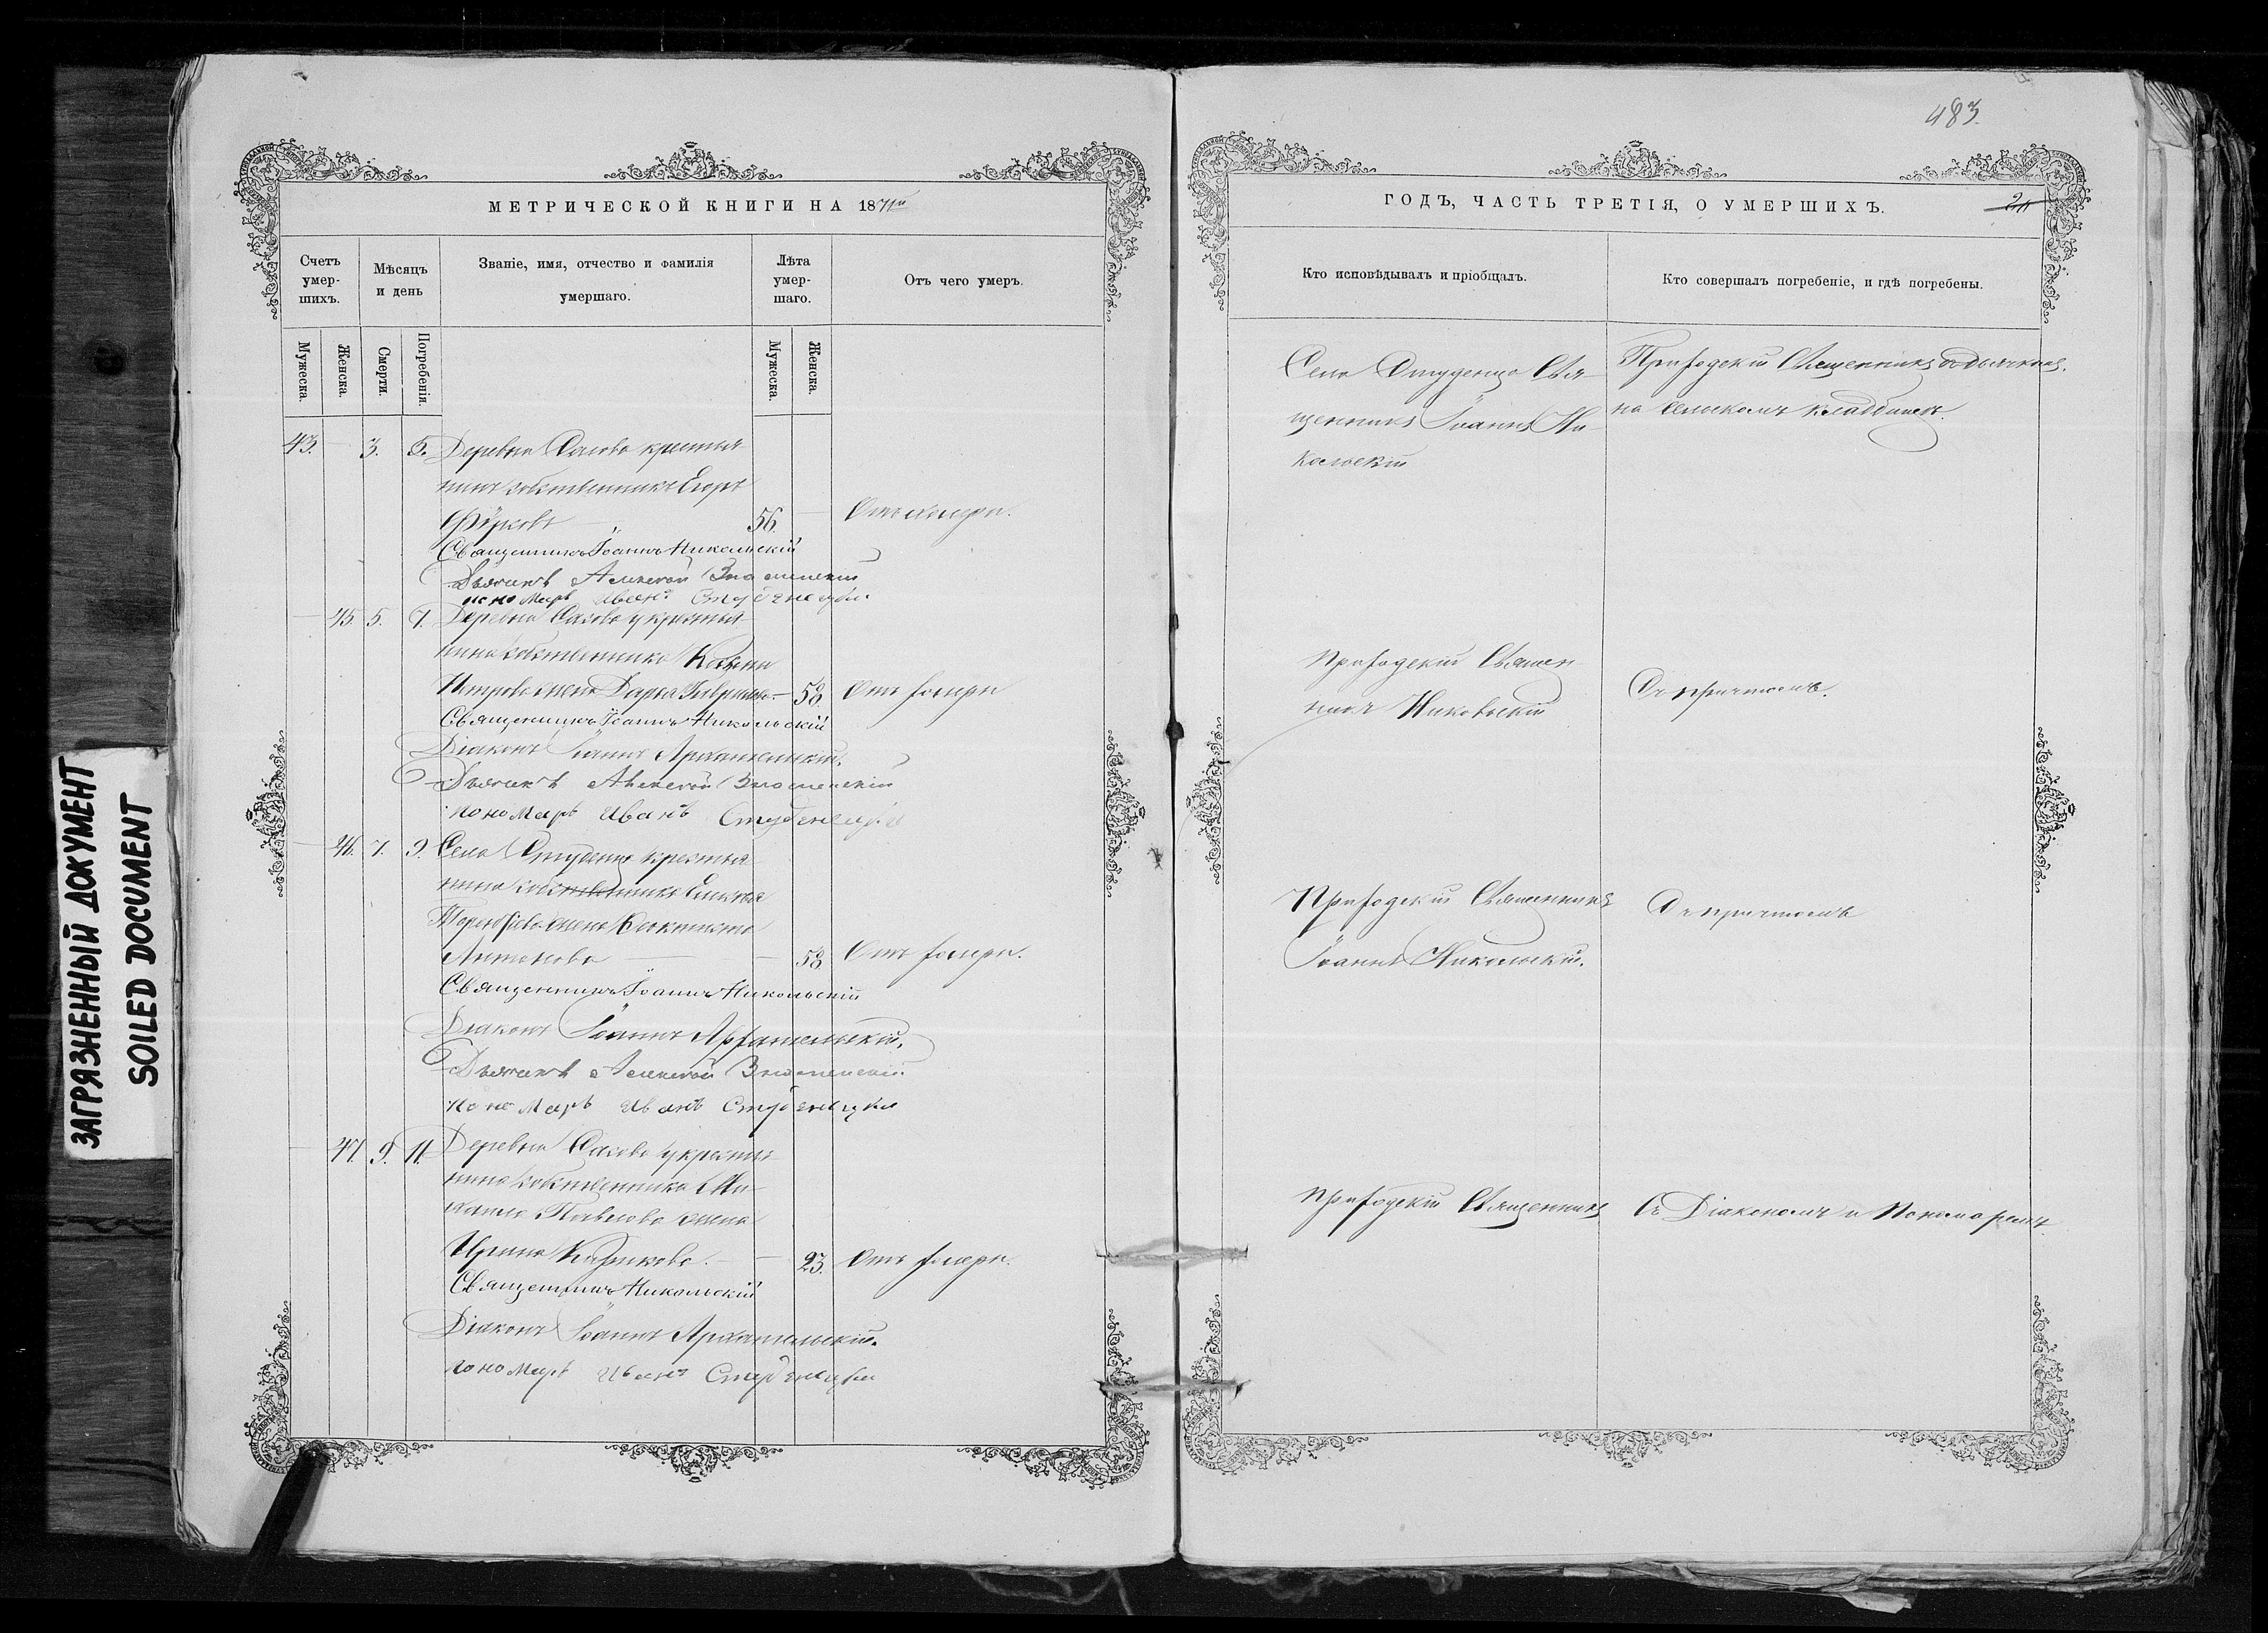 ЗАГРЯЗНЕННЫЙ ДОКУМЕНТ
SOILED DOCUMENT
МЕТРИЧЕСКОЙ КНИГИ НА 1871й
Счетъ умер-шихъ.
Мѣсяцъ и день
Званіе, имя, отчество и фамилія
умершаго.
Лѣта умер-шаго.
Отъ чего умеръ.
Мужеска.
Женска.
Смерти.
Погребенія.
Мужеска.
Женска.
43. 3. 5. Деревни Сахова крестья
нинъ собственникъ Егоръ
56. Отъ холеры.
Священникъ Іоаннъ Никольскій
Дьячекъ Алексѣй Знаменскій
пономарь Иванъ Студенецкій
45. 5. 7. Деревни Сахова крестья
нина собственника
Петрова жена Дарья Гаврилова 58. Отъ холеры
Священникъ Іоаннъ Никольскій
Діаконъ Іоаннъ Архангельскій.
Дьячекъ Алексѣй Знаменскій
пономарь Иванъ Студенецкій
46. 7. 9. Села Студенца крестья
нина собственника
жена
Антонова 58. Отъ холеры.
Священникъ Іоаннъ Никольскій
Діаконъ Іоаннъ Архангельскій.
Дьячекъ Алексѣй Знаменскій
пономарь Иванъ Студенецкій
47. 9. 11. Деревни Сахова крестья
нина собственника Ми
хаила Павлова жена
Ирина 23. Отъ холеры.
Священникъ Никольскій
Діаконъ Іоаннъ Архангельскій.
пономарь Иванъ Студенецкій
483.
ГОДЪ, ЧАСТЬ ТРЕТІЯ, О УМЕРШИХЪ.
Кто исповѣдывалъ и пріобщалъ.
Кто совершалъ погребеніе, и гдѣ погребены.
Села Студенца Свя-
щенникъ Іоаннъ Ни-
кольскій
Приходскій Священникъ съ дьячкомъ.
на сельскомъ кладбищѣ.
Приходскій Священ
никъ Никольскій
Съ причтомъ.
Приходскій Священникъ
Іоаннъ Никольскій.
Съ причтомъ
Приходскій Священникъ
Съ Діакономъ и Пономаремъ